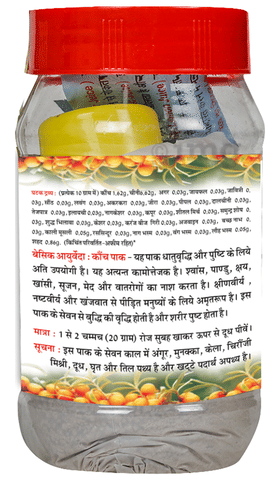 घटक द्रव्य : (प्रत्येक 10 ग्राम में) कौंच 1.62g, चीनी 6.62g, अगर 0.03g, जायफल 0.03g, जावित्री 0.03g, सौंठ 0.03g, लवंग 0.03g, अकरकरा 0.03g, जीरा 0.03g, पीपल 0.03g, दालचीनी 0.03g,
तेजपात्र 0.03g, इलायची 0.03g, नागकेशर 0.03g, कपूर 0.03g, शीतल मिर्च 0.03g, समुद्र शोष 0.03g,
शुद्ध भिलावा 0.03g, केशर 0.03g, करंज बीज गिरी 0.03g, अजवाइन 0.03g,
काली मूसली 0.03g, नाग भस्म 0.03g, बंग भस्म 0.03g, लौह भस्म 0.05g,
शहद 0.86g
बेसिक आयुर्वेदा : कौंच पाक - यह पाक धातुवृद्धि और पुष्टि के लिये
अति उपयोगी है। यह अत्यन्त कामोत्तेजक है। श्वांस, पाण्डु, क्षय,
खांसी, सूजन, मेद और वातरोगों का नाश करता है। क्षीणवीर्य ,
नष्टवीर्य और खंजवात से पीड़ित मनुष्यों के लिये अमृतरूप है। इस
पाक के सेवन से बुद्धि की वृद्धि होती है और शरीर पुष्ट होता है।
मात्रा : 1 से 2 चम्मच (20 ग्राम) रोज सुबह खाकर ऊपर से दूध पीवें।
सूचना : इस पाक के सेवन काल में अंगूर, मुनक्का, केला, चिरौंजी
मिश्री, दूध, घृत और तिल पथ्य है और खट्टे पदार्थ अपथ्य है।